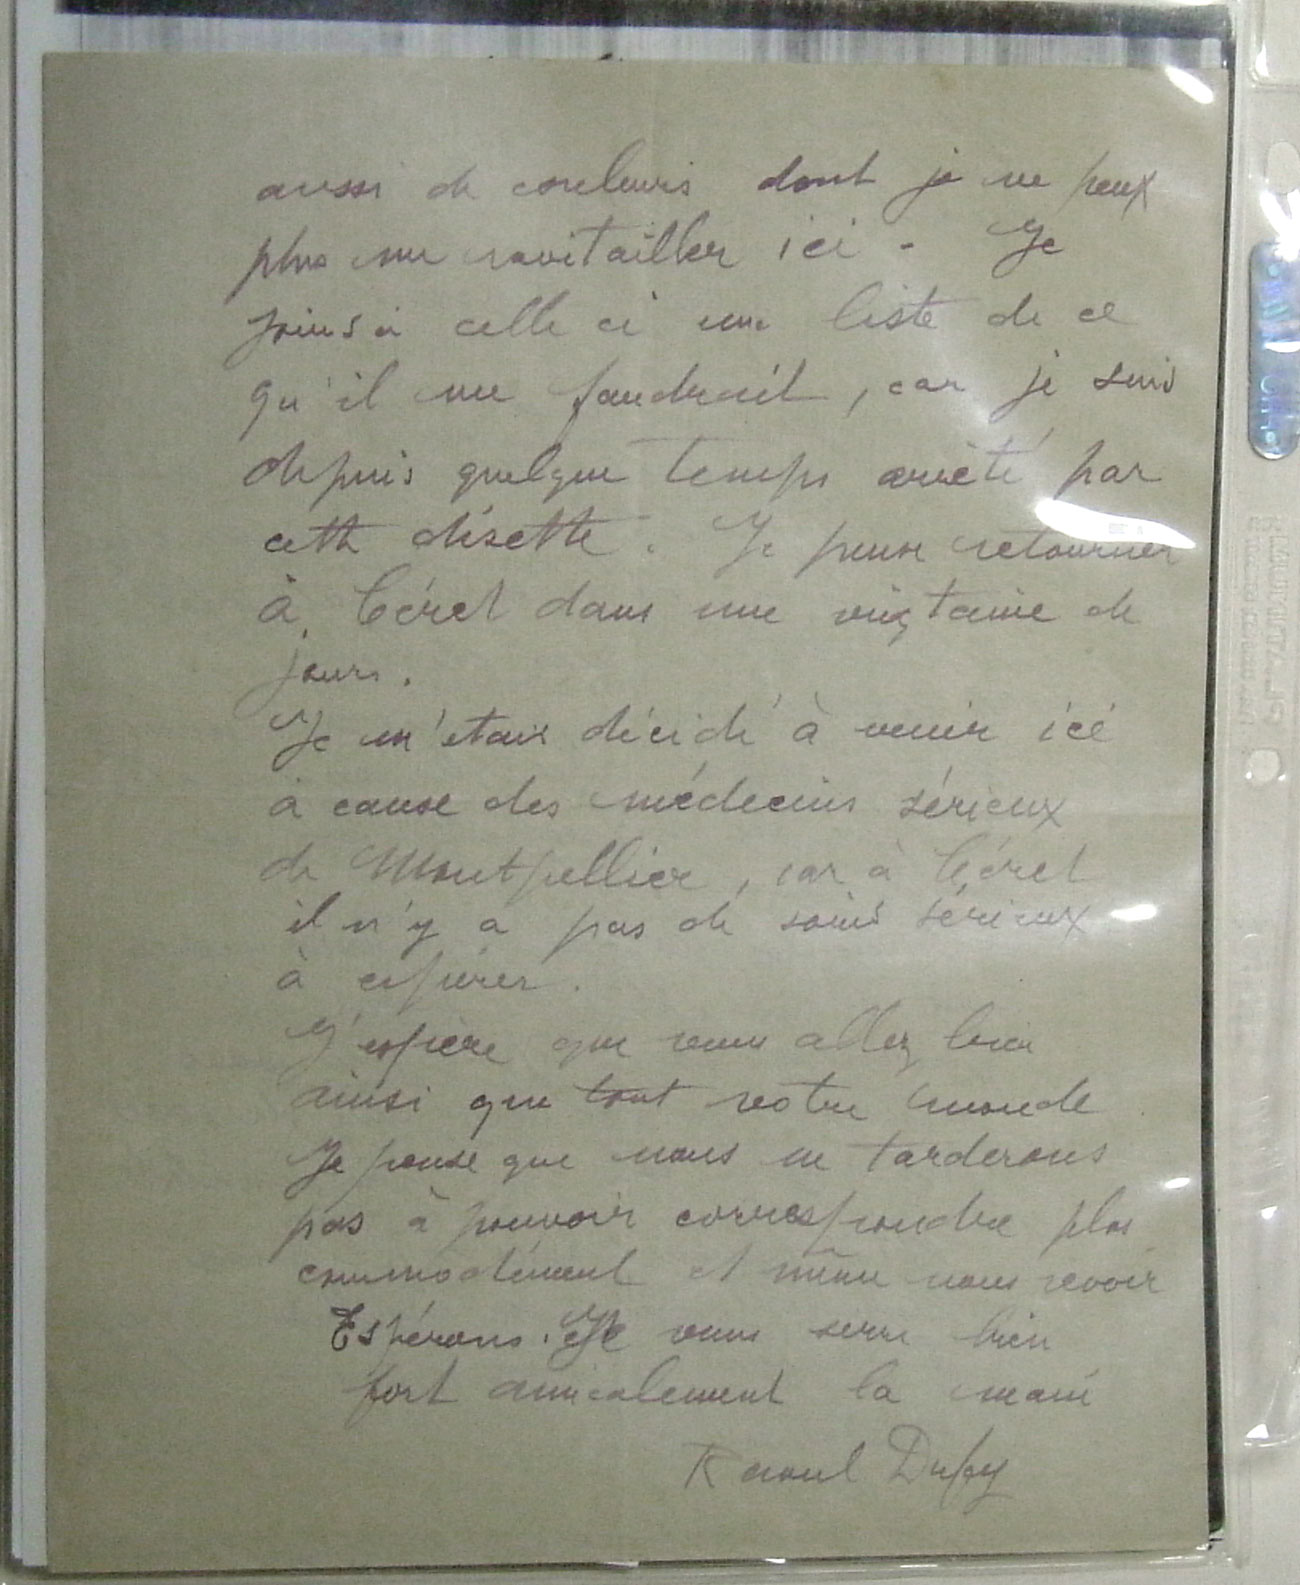 aussi de couleurs dont je ne peux
plus me ravitailler ici - Je
joins à celle ci une liste de ce
qu'il me faudrait, car je suis
depuis quelque temps arrêté par
cette disette. Je pense retourner
à Céret dans une vingtaine de
jours.
Je m'étais décidé à venir ici
à cause des médecins sérieux
de Montpellier, car à Céret
il n'y a pas de soins sérieux
à espérer.
J'espère que vous allez bien
ainsi que tout votre monde
Je pense que nous ne tarderons
pas à pouvoir correspondre plus
commodément et même nous revoir
Espérons. Je vous serre bien
fort amicalement la main
Raoul Dufy